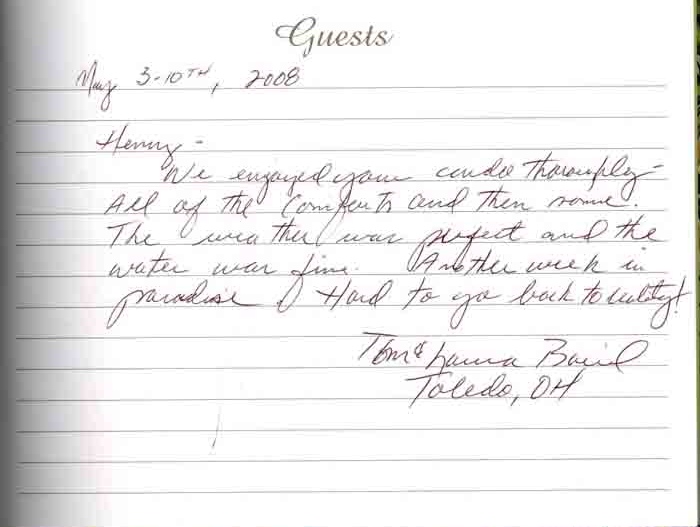 Guests
May 3-10TH, 2008
Henry -
We enjoyed your condo thoroughly -
All of the comforts and then some.
The weather was perfect and the
water was fine. Another week in
paradise! Hard to go back to reality!
Tom & Laura Baird
Toledo, OH